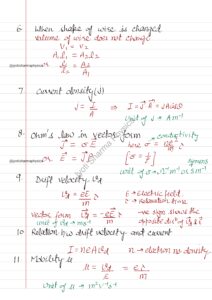 6 When shape of wire is changed
volume of wire does not change
V₁ = V₂
A₁l₁ = A₂l₂
or l₁/l₂ = A₂/A₁
7 Current density (J)
J = I/A ⇒ I = J⃗·A⃗ = JA cosθ
Unit of J → A m⁻²
8 Ohm's law in vector form
J⃗ = σE⃗ where σ = conductivity
or E⃗ = ρJ⃗ [σ = 1/ρ]
unit of σ → Ω⁻¹m⁻¹ or S m⁻¹
9 Drift velocity v⃗d
vd = eE/m τ E → Electric field
τ → Relaxation time
vector form v⃗d = -eE⃗/m τ -ve sign shows the
unit of vd → ms⁻¹
10 Relation b/w drift velocity and current
I = neAvd n → electron no. density
11 Mobility μ
μ = vd/E = eτ/m
unit of μ → m²V⁻¹s⁻¹